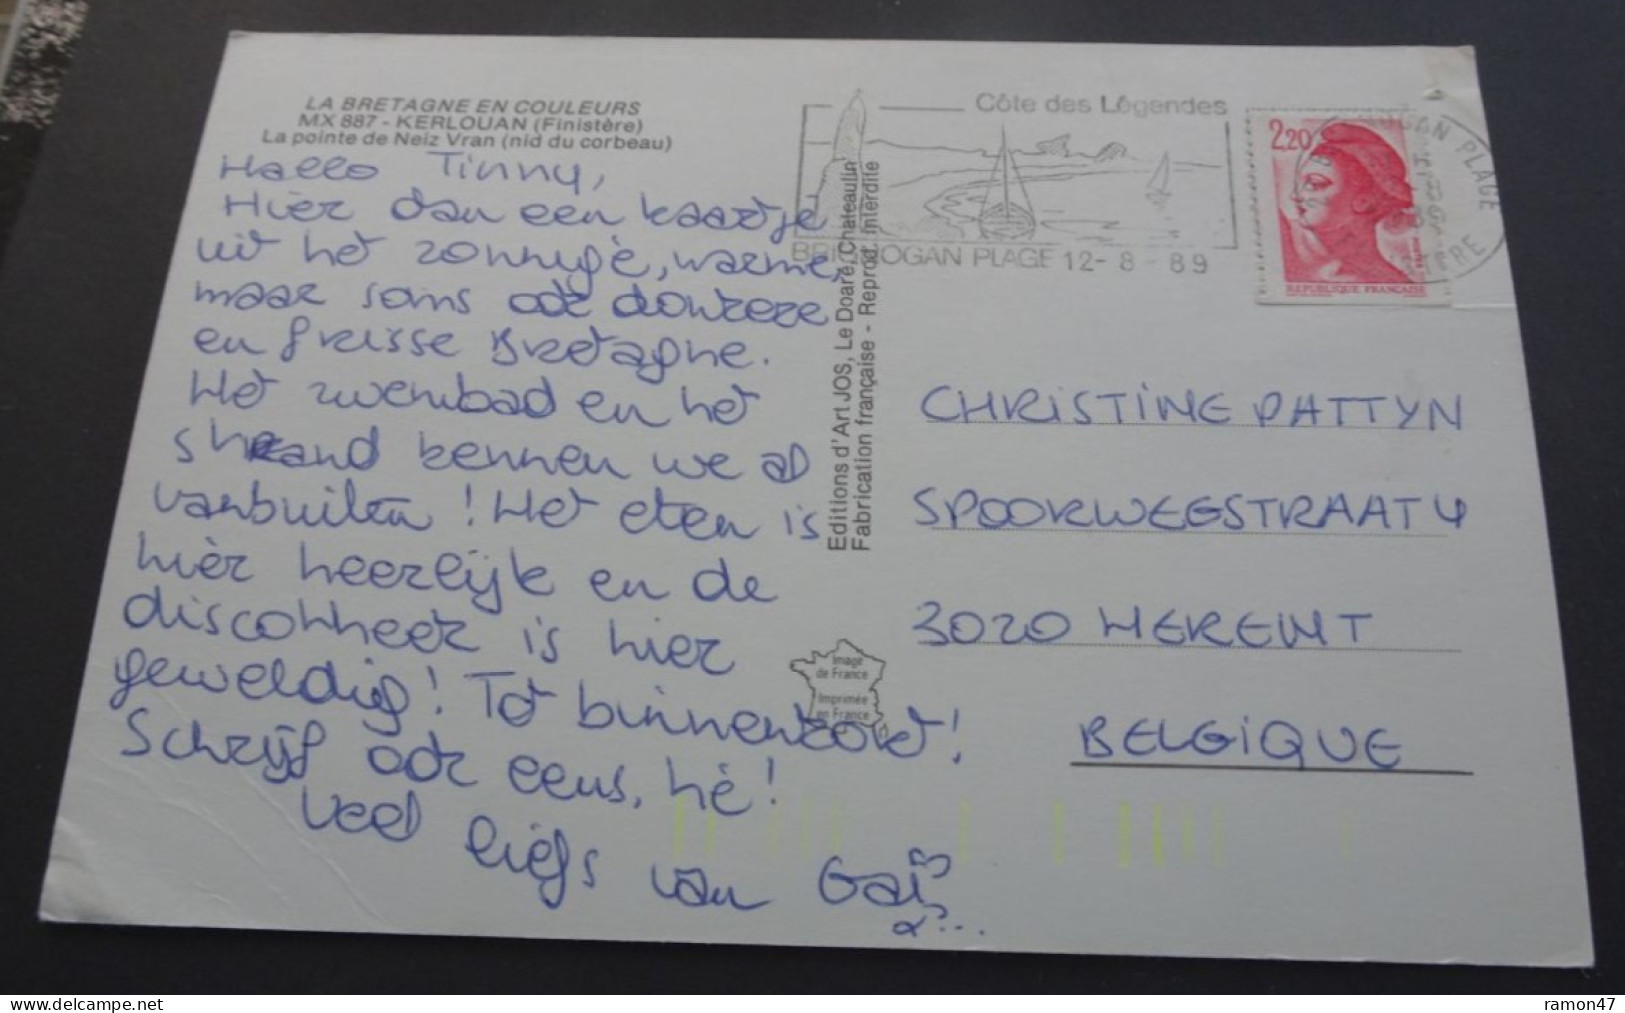 LA BRETAGNE EN COULEURS
MX 887 - KERLOUAN (Finistère)
La pointe de Neiz Vran (nid du corbeau)
Hallo Tinny,
Hier dan een kaartje
uit het zonnige, warme,
maar soms ook donkere
en frisse Bretagne.
Het zwembad en het
strand kennen we al
vanbuiten! Het eten is
hier heerlijk en de
discotheek is hier
geweldig! Tot binnenkort!
Schrijf ook eens, hè!
Veel liefs van
Editions d'Art JOS, Le Doaré, Chateaulin
Fabrication française - Reprod. Interdite
Image
de France
Imprimée
en France
Côte des Légendes
BRIGNOGAN PLAGE 12-8-89
2,20
REPUBLIQUE FRANÇAISE
PLAGE
CHRISTINE PATTYN
SPOORWEGSTRAAT 4
3020 HERENT
BELGIQUE
ramon47